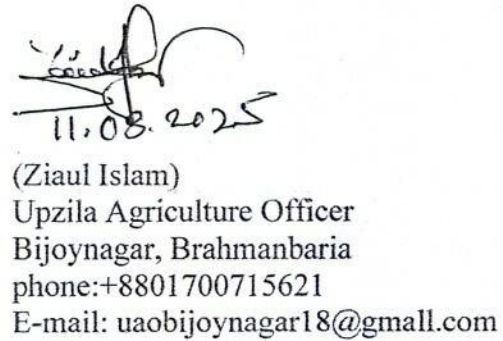 11.08.2025
(Ziaul Islam)
Upzila Agriculture Officer
Bijoynagar, Brahmanbaria
phone:+8801700715621
E-mail: uaobijoynagar18@gmall.com